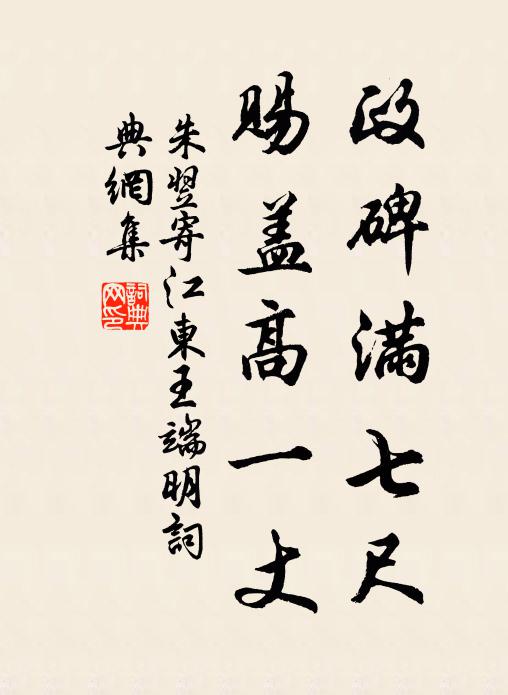 政碑满七尺
赐盖高一丈
朱翌寄江東王端明詞
典網集
詞典网印